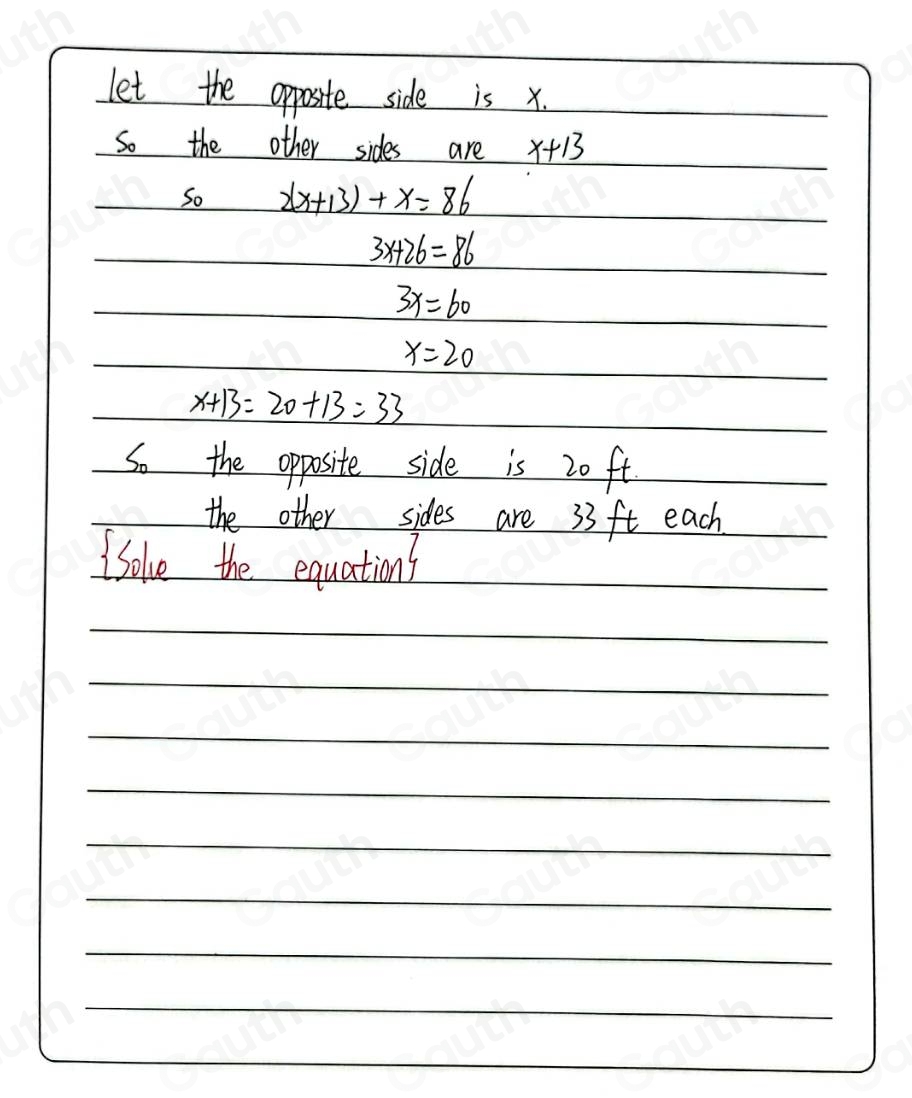 let the opposite side is x.
So the other sides are x+13
so 2(x+13)+x=86
3x+26=86
3x=60
x=20
x+13=20+13=33
So the opposite side is 20 ft.
the other sides are 33 ft each.
{Solve the equation}